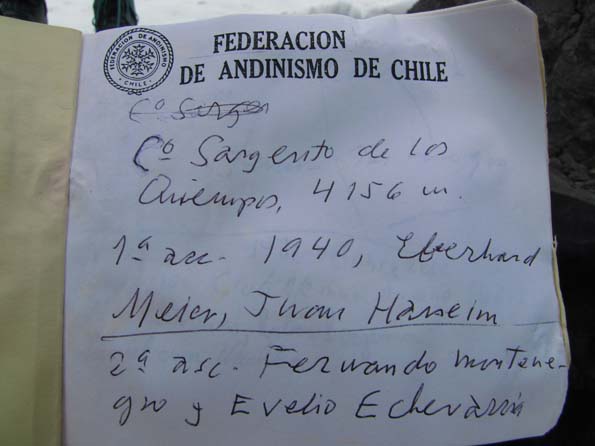 FEDERACION DE ANDINISMO
CHILE
FEDERACION
DE ANDINISMO DE CHILE
Cº
Cº Sargento de los
Quempos, 4156 m.
1ª asc. 1940, Eberhard
Meier, Juan Harseim
2ª asc. Fernando Montene-
gro y Evelio Echevarría